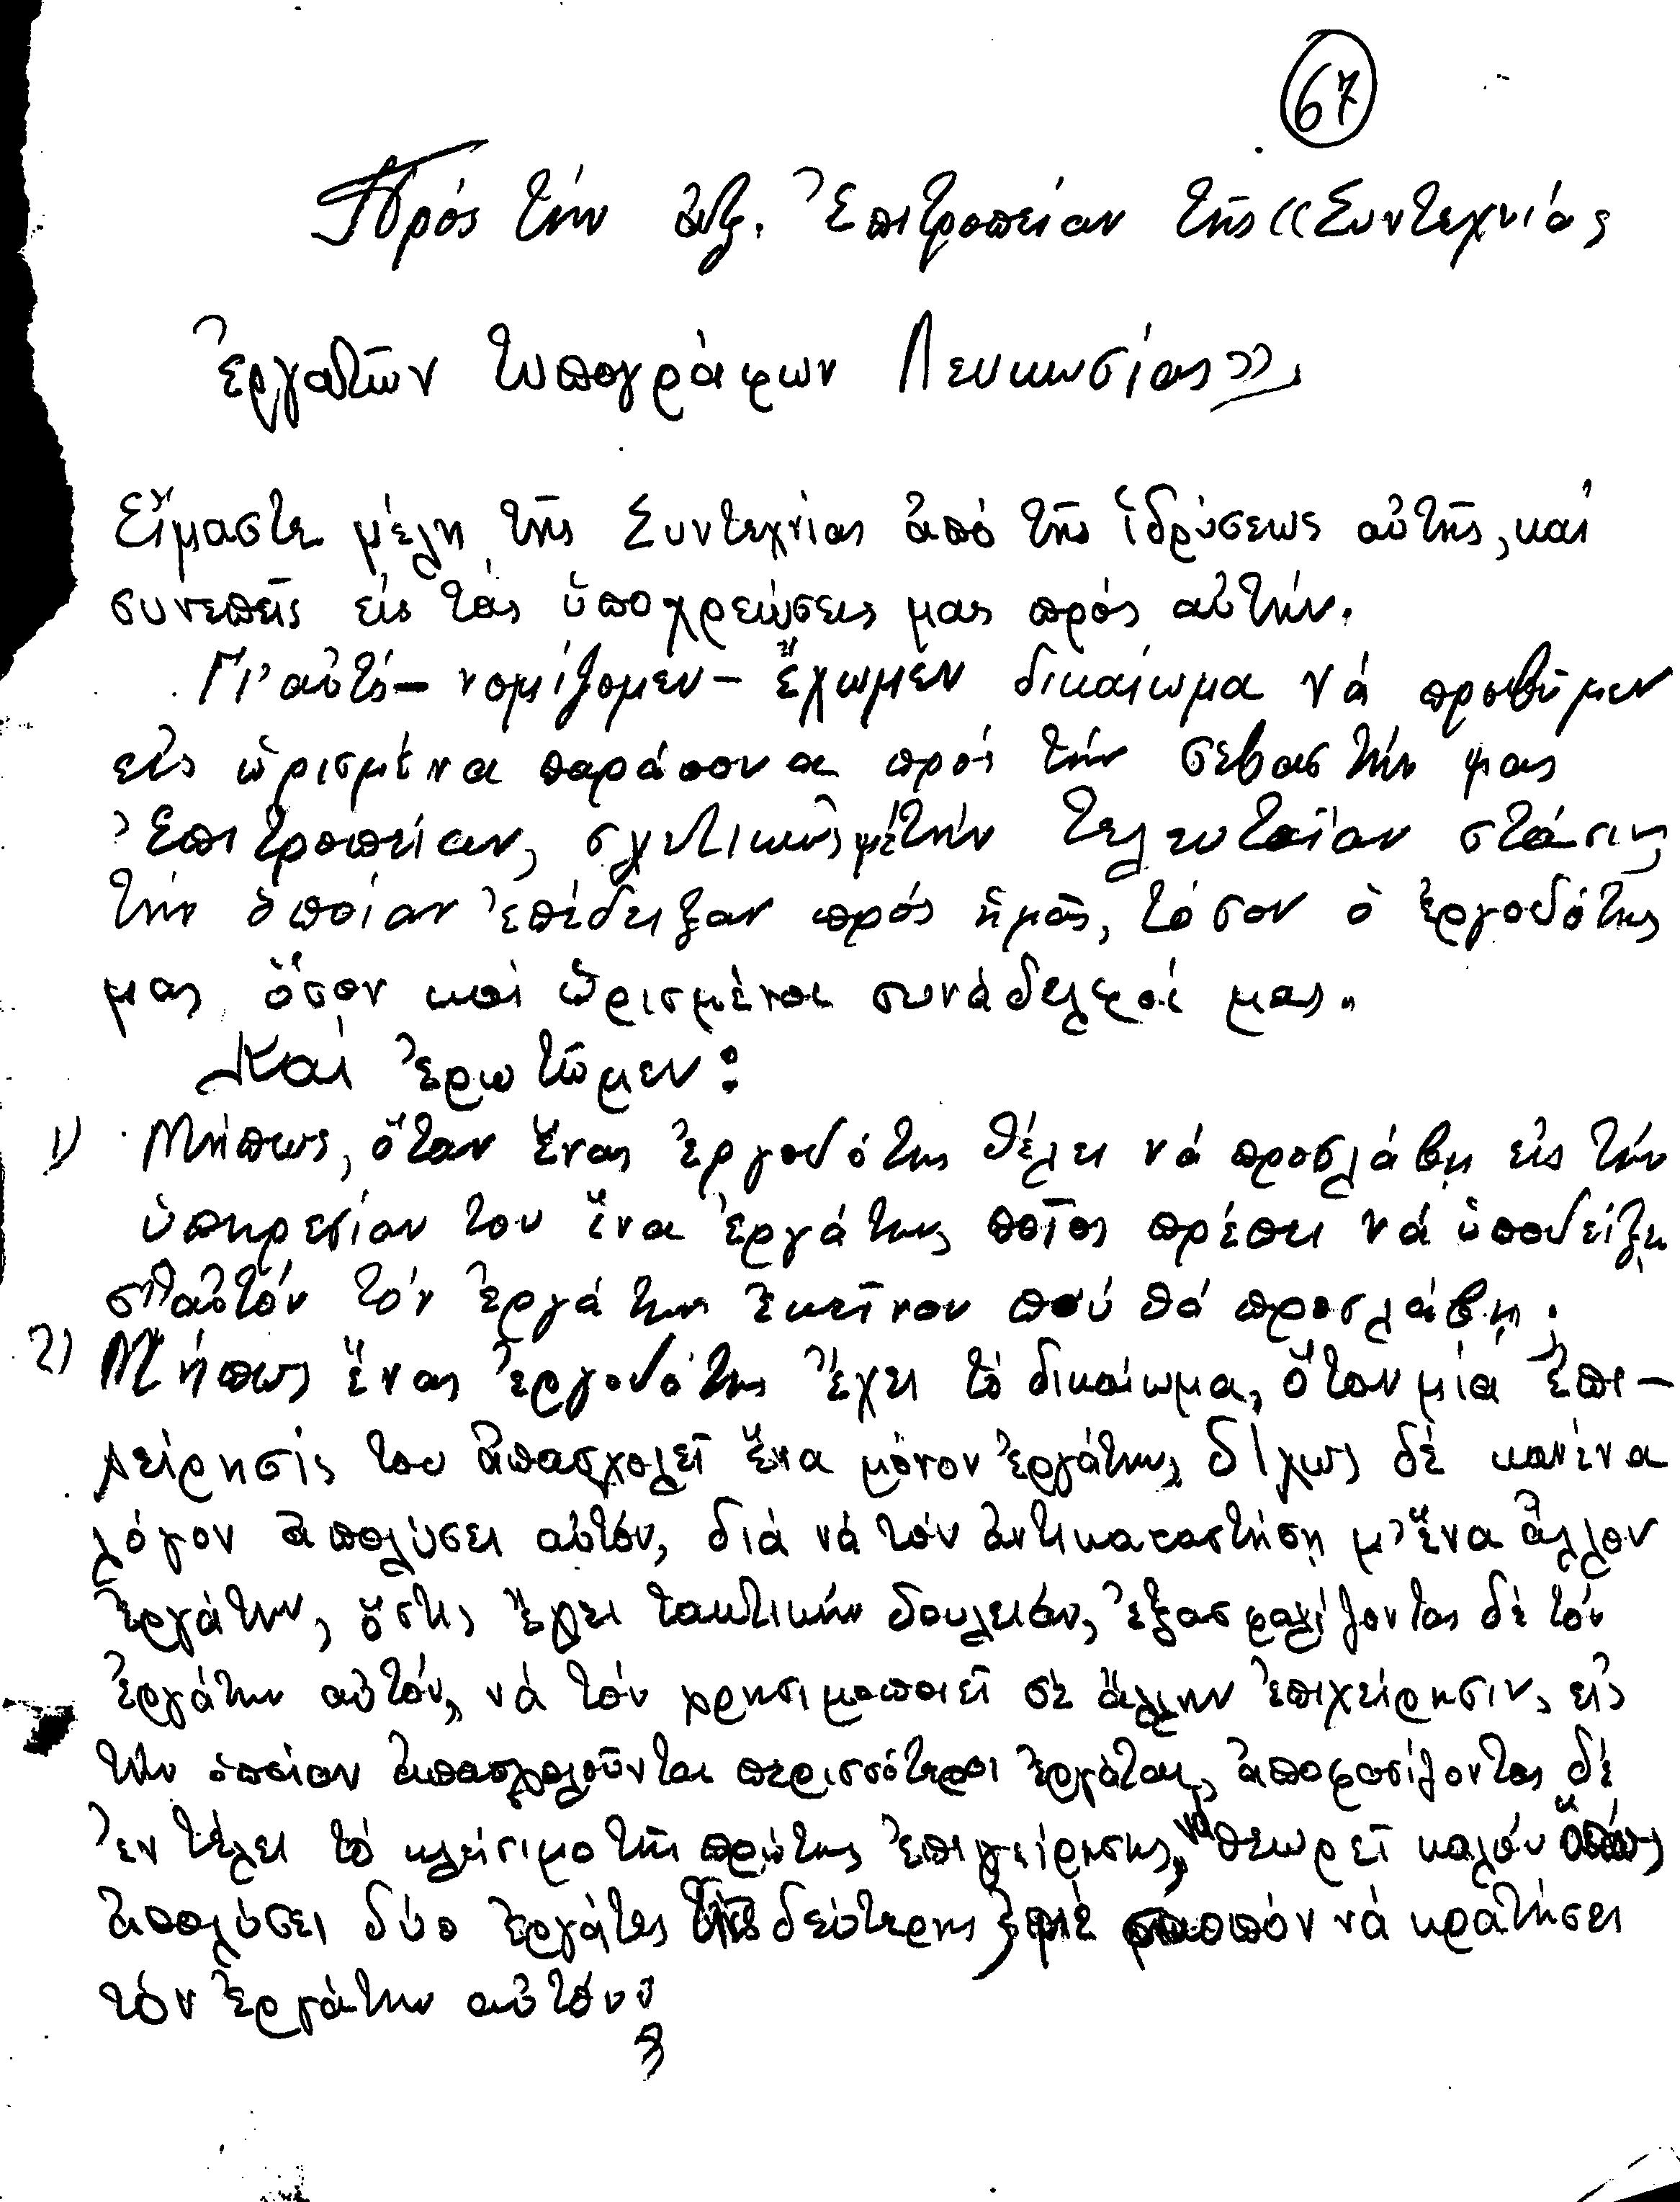 67
Πρός τήν ἀξ. Ἐπιτροπείαν τῆς «Συντεχνίας
Ἐργατῶν Τυπογράφων Λευκωσίας»,
Εἴμαστε μέλη τῆς Συντεχνίας ἀπό τῆς ἱδρύσεως αὐτῆς, καί
συνεπεῖς εἰς τάς ὑποχρεώσεις μας πρός αὐτήν.
Γι' αὐτό - νομίζομεν - ἔχωμεν δικαίωμα νά προβῶμεν
εἰς ὡρισμένα παράπονα πρός τήν σεβαστήν μας
Ἐπιτροπείαν, σχετικῶς μέ τήν τελευταῖαν στάσιν,
τήν ὁποίαν ἐπέδειξαν πρός ἡμᾶς, τόσον ὁ ἐργοδότης
μας ὅσον καί ὡρισμένοι συνάδελφοί μας.
Καί ἐρωτῶμεν:
1) Μήπως, ὅταν ἕνας ἐργοδότης θέλει νά προσλάβῃ εἰς τήν
ὑπηρεσίαν του ἕνα ἐργάτην, ποῖος πρέπει νά ὑποδείξῃ
σ' αὐτόν τόν ἐργάτην ἐκεῖνον πού θά προσλάβῃ;
2) Μήπως ἕνας ἐργοδότης ἔχει τό δικαίωμα, ὅταν μιά ἐπι-
χείρησίς του ἀπασχολεῖ ἕνα μόνον ἐργάτην, δίχως δέ κανένα
λόγον ἀπολύσει αὐτόν, διά νά τόν ἀντικαταστήσῃ μ' ἕνα ἄλλον
ἐργάτην, ὅστις ἔχει τακτικήν δουλειάν, ἐξασφαλίζοντας δέ τόν
ἐργάτην αὐτόν, νά τόν χρησιμοποιεῖ σέ ἄλλην ἐπιχείρησιν, εἰς
τήν ὁποίαν ἀπασχολοῦνται περισσότεροι ἐργάται, ἀποφασίζοντας δέ
ἐν τέλει τό κλείσιμο τῆς πρώτης ἐπιχείρησης, νά θεωρεῖ καλόν ὅπως
ἀπολύσει δύο ἐργάτες τῆς δεύτερης μέ σκοπόν νά κρατήσει
τόν ἐργάτην αὐτόν;